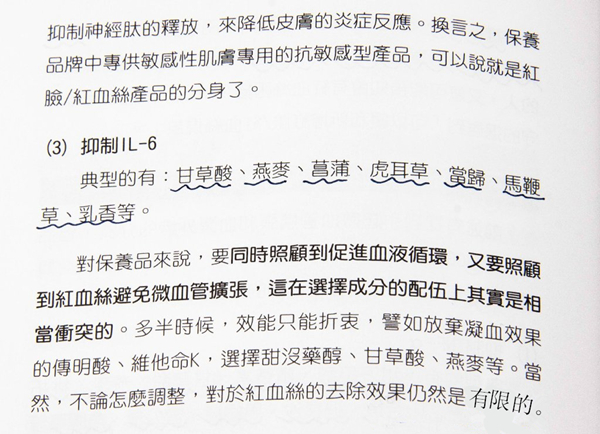 抑制神經肽的釋放，來降低皮膚的炎症反應。換言之，保養
品牌中專供敏感性肌膚專用的抗敏感型產品，可以說就是紅
臉/紅血絲產品的分身了。
(3) 抑制IL-6
典型的有：甘草酸、燕麥、菖蒲、虎耳草、當歸、馬鞭
草、乳香等。
對保養品來說，要同時照顧到促進血液循環，又要照顧
到紅血絲避免微血管擴張，這在選擇成分的配伍上其實是相
當衝突的。多半時候，效能只能折衷，譬如放棄凝血效果
的傳明酸、維他命K，選擇甜沒藥醇、甘草酸、燕麥等。當
然，不論怎麼調整，對於紅血絲的去除效果仍然是有限的。